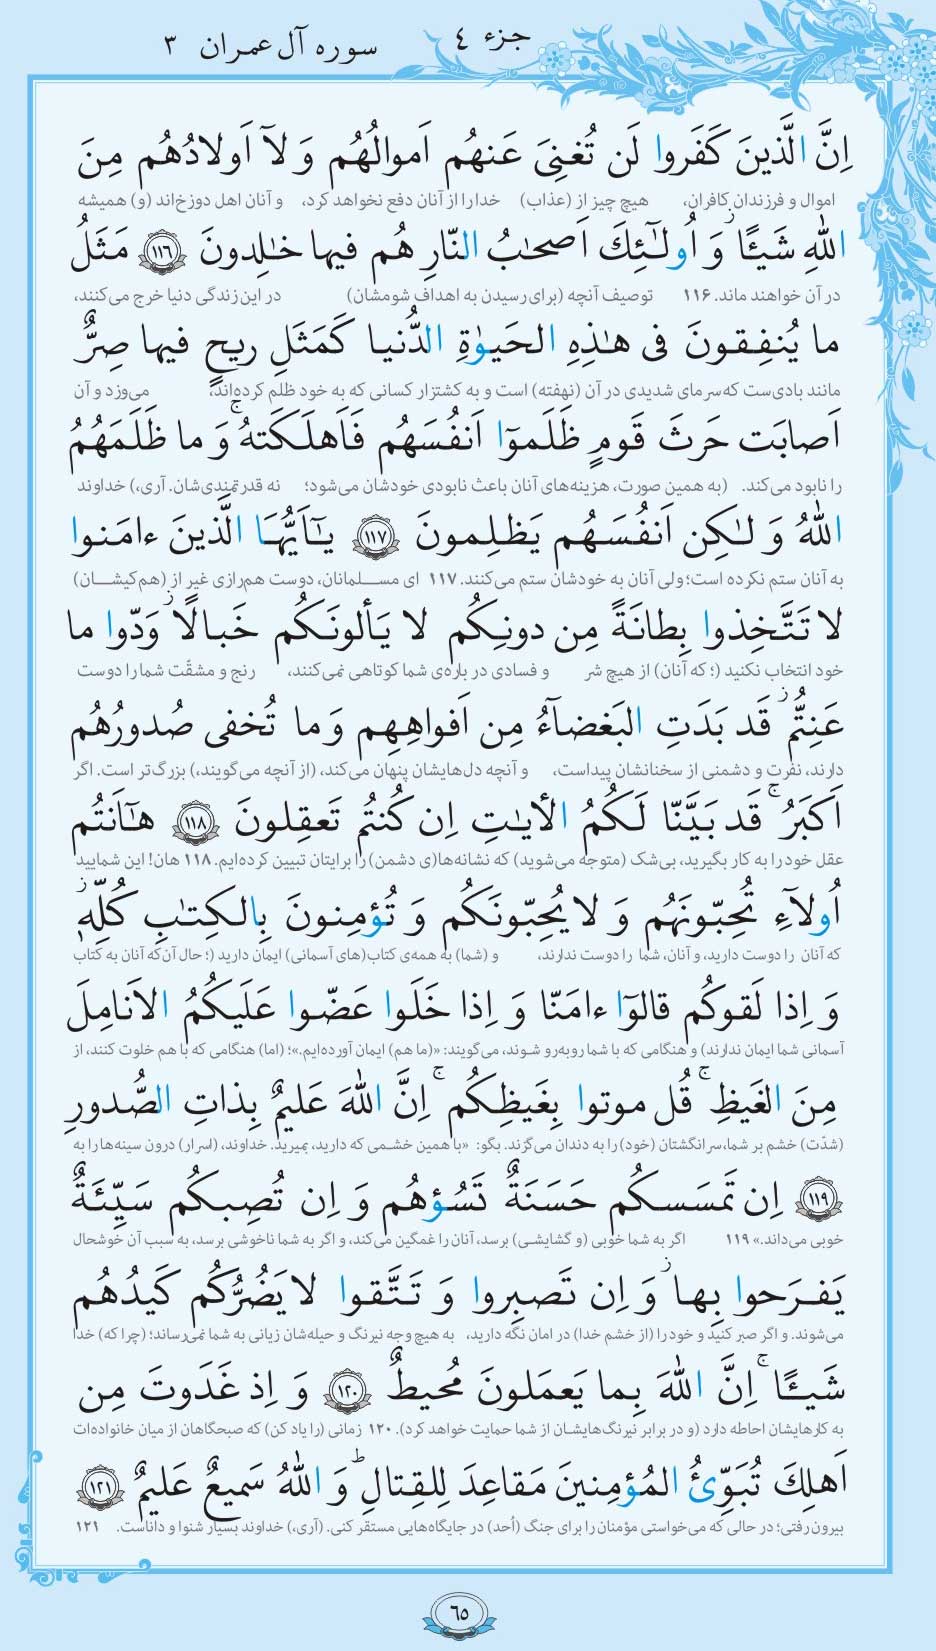 جزء ٤
سوره آل عمران ٣
اِنَّ الَّذينَ كَفَروا لَن تُغنِىَ عَنهُم اَموالُهُم وَ لَآ اَولادُهُم مِنَ
اموال و فرزندان کافران، هیچ چیز از (عذاب) خدا را از آنان دفع نخواهد کرد، و آنان اهل دوزخ‌اند (و) همیشه
اللهِ شَيـًٔا ۖ وَ اُولـٰٓئِكَ اَصحـٰبُ النّارِ هُم فيها خـٰلِدونَ ﴿١١٦﴾ مَثَلُ
در آن خواهند ماند. ۱۱۶ توصیف آنچه (برای رسیدن به اهداف شومشان) در این زندگی دنیا خرج می‌کنند،
ما يُنفِقونَ فى هـٰذِهِ الحَيوٰةِ الدُّنيا كَمَثَلِ ريحٍ فيها صِرٌّ
مانند بادی‌ست که سرمای شدیدی در آن (نهفته) است و به کشتزار کسانی که به خود ظلم کرده‌اند، می‌وزد و آن
اَصابَت حَرثَ قَومٍ ظَلَموٓا اَنفُسَهُم فَاَهلَكَتهُ ۚ وَ ما ظَلَمَهُمُ
را نابود می‌کند. (به همین صورت، هزینه‌های آنان باعث نابودی خودشان می‌شود؛ نه قدرتمندی‌شان. آری،) خداوند
اللهُ وَ لـٰكِن اَنفُسَهُم يَظلِمونَ ﴿١١٧﴾ يـٰٓاَيُّهَا الَّذينَ ءامَنوا
به آنان ستم نکرده است؛ ولی آنان به خودشان ستم می‌کنند. ۱۱۷ ای مسلمانان، دوست هم‌رازی غیر از (هم‌کیشان)
لا تَتَّخِذوا بِطانَةً مِن دونِكُم لا يَألونَكُم خَبالًا ۖ وَدّوا ما
خود انتخاب نکنید (؛ که آنان) از هیچ شر و فسادی در باره‌ی شما کوتاهی نمی‌کنند، رنج و مشقّت شما را دوست
عَنِتُّم ۖ قَد بَدَتِ البَغضآءُ مِن اَفواهِهِم وَ ما تُخفى صُدورُهُم
دارند، نفرت و دشمنی از سخنانشان پیداست، و آنچه دل‌هایشان پنهان می‌کند، (از آنچه می‌گویند،) بزرگ‌تر است. اگر
اَكبَرُ ۚ قَد بَيَّنّا لَكُمُ الأيـٰتِ اِن كُنتُم تَعقِلونَ ﴿١١٨﴾ هـٰٓاَنتُم
عقل خود را به کار بگیرید، بی‌شک (متوجه می‌شوید) که نشانه‌ها(ی دشمن) را برایتان تبیین کرده‌ایم. ۱۱۸ هان! این شمایید
اُولآءِ تُحِبّونَهُم وَ لا يُحِبّونَكُم وَ تُؤمِنونَ بِالكِتـٰبِ كُلِّهٖ ۖ
که آنان را دوست دارید، و آنان، شما را دوست ندارند، و (شما) به همه‌ی کتاب(های آسمانی) ایمان دارید (؛ حال آن‌که آنان به کتاب
وَ اِذا لَقوكُم قالوٓا ءامَنّا وَ اِذا خَلَوا عَضّوا عَلَيكُمُ الاَنامِلَ
آسمانی شما ایمان ندارند) و هنگامی که با شما روبه‌رو شوند، می‌گویند: «(ما هم) ایمان آورده‌ایم.»؛ (اما) هنگامی که با هم خلوت کنند، از
مِنَ الغَيظِ ۚ قُل موتوا بِغَيظِكُم ۚ اِنَّ اللهَ عَليمٌ بِذاتِ الصُّدورِ
(شدّت) خشم بر شما، سرانگشتان (خود) را به دندان می‌گزند. بگو: «با همین خشمی که دارید، بمیرید. خداوند، (اسرار) درون سینه‌ها را به
﴿١١٩﴾ اِن تَمسَسكُم حَسَنَةٌ تَسُؤهُم وَ اِن تُصِبكُم سَيِّئَةٌ
خوبی می‌داند.» ۱۱۹ اگر به شما خوبی (و گشایشی) برسد، آنان را غمگین می‌کند، و اگر به شما ناخوشی برسد، به سبب آن خوشحال
يَفرَحوا بِها ۖ وَ اِن تَصبِروا وَ تَتَّقوا لا يَضُرُّكُم كَيدُهُم
می‌شوند. و اگر صبر کنید و خود را (از خشم خدا) در امان نگه دارید، به هیچ وجه نیرنگ و حیله‌شان زیانی به شما نمی‌رساند؛ (چرا که) خدا
شَيـًٔا ۚ اِنَّ اللهَ بِما يَعمَلونَ مُحيطٌ ﴿١٢٠﴾ وَ اِذ غَدَوتَ مِن
به کارهایشان احاطه دارد (و در برابر نیرنگ‌هایشان از شما حمایت خواهد کرد). ۱۲۰ زمانی (را یاد کن) که صبحگاهان از میان خانواده‌ات
اَهلِكَ تُبَوِّئُ المُؤمِنينَ مَقاعِدَ لِلقِتالِ ؕ وَ اللهُ سَميعٌ عَليمٌ ﴿١٢١﴾
بیرون رفتی؛ در حالی که می‌خواستی مؤمنان را برای جنگ (اُحد) در جایگاه‌هایی مستقر کنی. (آری،) خداوند بسیار شنوا و داناست. ۱۲۱
٦٥